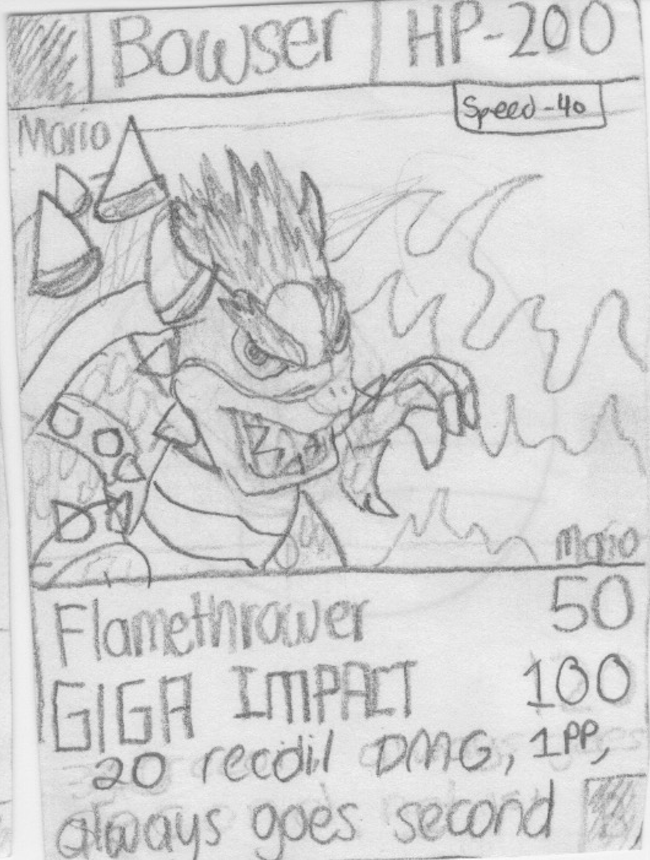 Bowser HP-200
Speed-40
Mario
Mario
Flamethrower 50
GIGA IMPACT 100
20 recoil DMG, 1PP,
always goes second